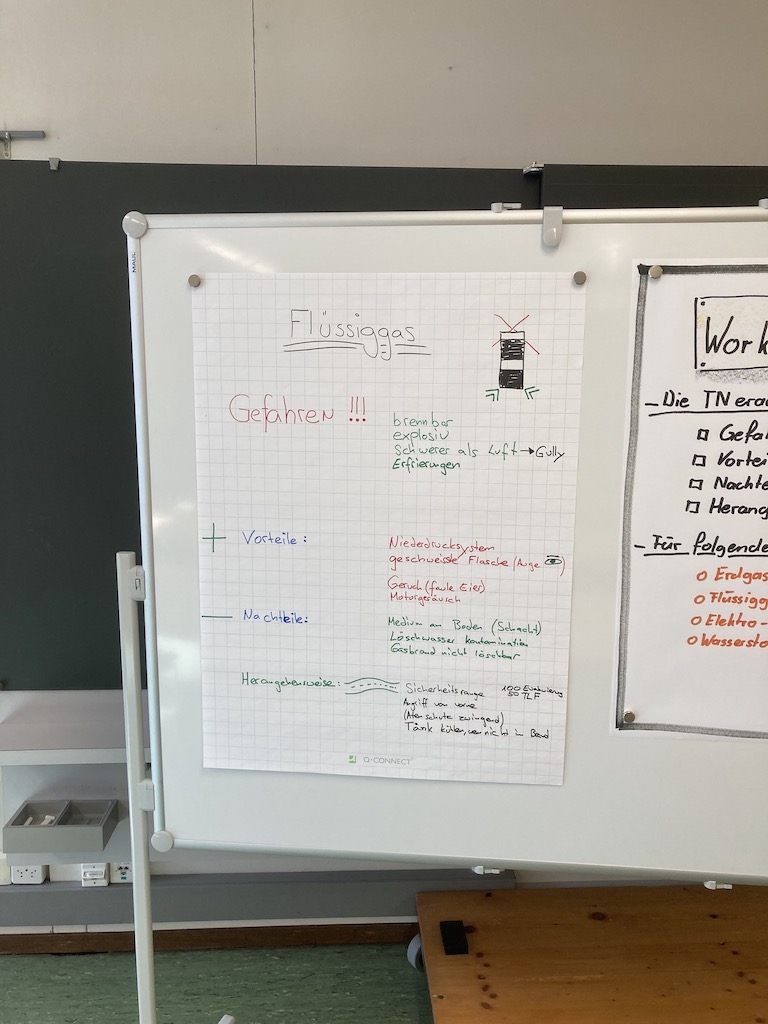 MAUL
Flüssiggas
Gefahren !!!
brennbar
explosiv
Schwerer als Luft → Gully
Erfrierungen
+ Vorteile:
Niederdrucksystem
geschweisste Flasche (Auge)
Geruch (faule Eier)
Motorgeräusch
— Nachteile:
Medium am Boden (Schacht)
Löschwasser kontamination
Gasbrand nicht löschbar
Herangehensweise:
Sicherheitsrange 100 Evakuierung
50 TLF
Angriff von vorne
(Atemschutz zwingend)
Tank kühlen, wenn nicht in Brand
Q-CONNECT
Work
- Die TN erar
Gefah
Vorteil
Nachte
Herang
- Für folgende
Erdgas
Flüssigg
Elektro-
Wassersto